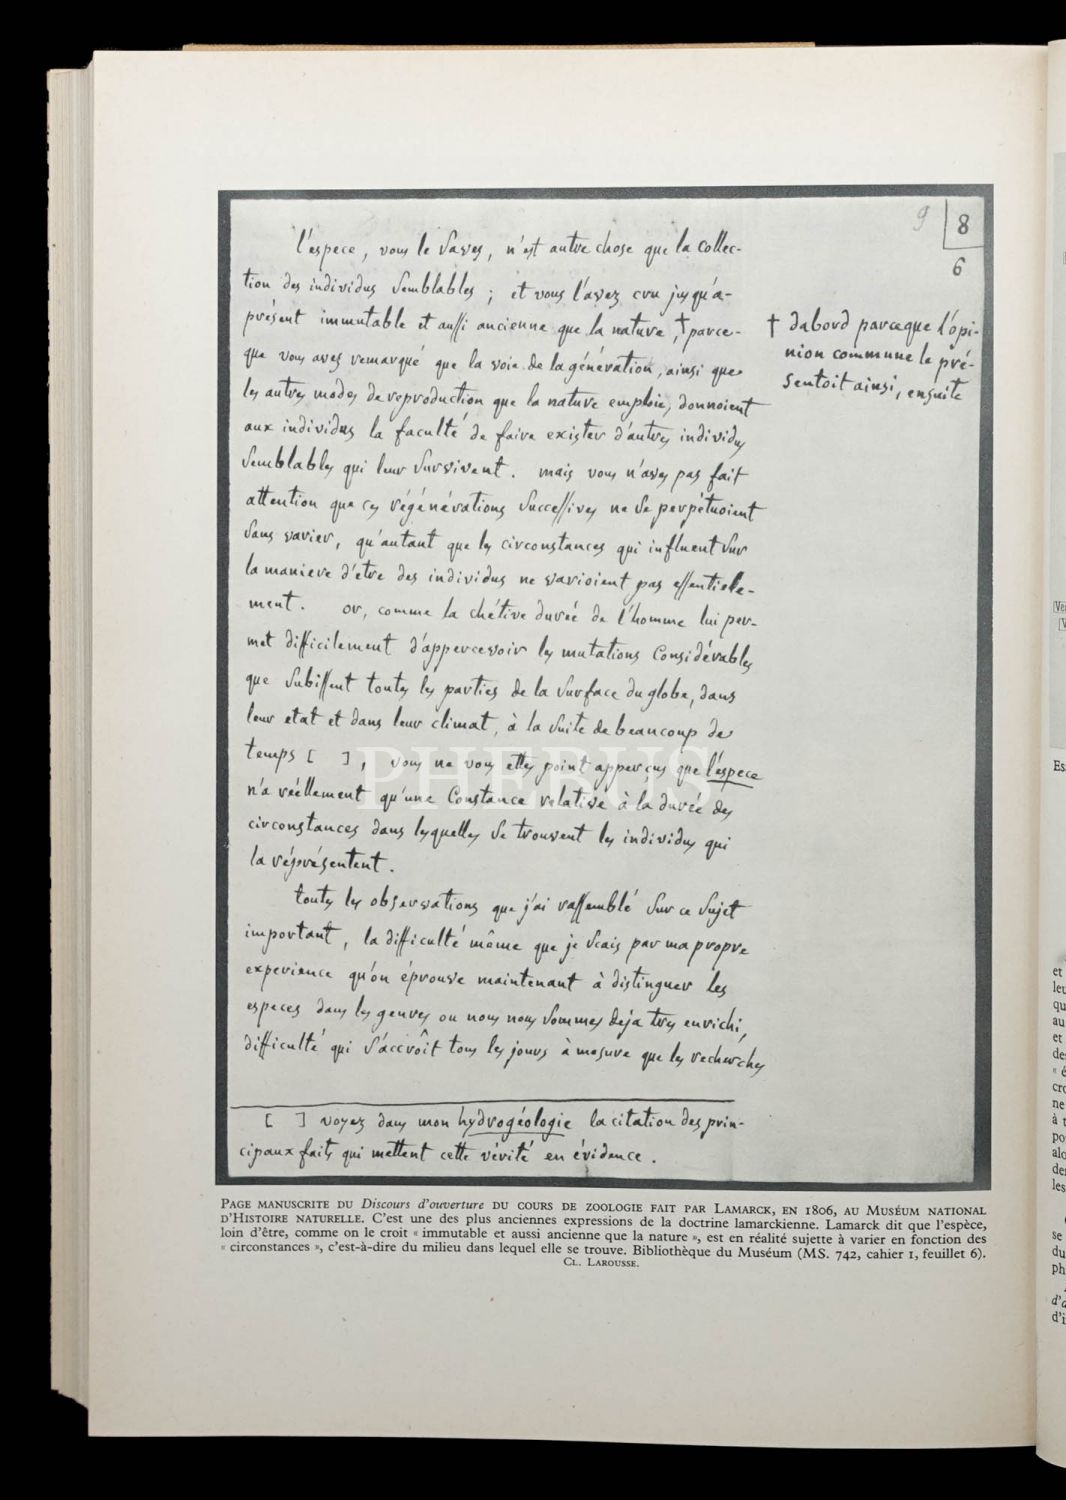 9
8
6
l'espece, vous le savez, n'est autre chose que la collec-
tion des individus semblables ; et vous l'avez cru jusqu'a-
présent immutable et aussi ancienne que la nature, † parce-
que vous avez remarqué que la voie de la génération, ainsi que
les autres modes de reproduction que la nature emploie, donnoient
aux individus la faculté de faire exister d'autres individus
semblables qui leur survivent. mais vous n'avez pas fait
attention que ces régénérations successives ne se perpétuoient
sans varier, qu'autant que les circonstances qui influent sur
la maniere d'etre des individus ne varioient pas essentiele-
ment. or, comme la chétive durée de l'homme lui per-
met difficilement d'appercevoir les mutations considérables
que subissent toutes les parties de la surface du globe, dans
leur etat et dans leur climat, à la suite de beaucoup de
temps [ ], vous ne vous etes point apperçus que l'espece
n'a réellement qu'une constance relative à la durée des
circonstances dans lesquelles se trouvent les individus qui
la réprésentent.
toutes les observations que j'ai rassemblé sur ce sujet
important, la difficulté même que je scais par ma propre
experience qu'on éprouve maintenant à distinguer les
especes dans les genres ou nous nous sommes deja tres enrichi,
difficulté qui s'accroît tous les jours à mesure que les recherches
† dabord parceque l'opi-
nion commune le pré-
sentoit ainsi, ensuite
[ ] voyez dans mon hydrogéologie la citation des prin-
cipaux faits qui mettent cette vérité en évidence.
PHEBUS
PAGE MANUSCRITE DU Discours d'ouverture DU COURS DE ZOOLOGIE FAIT PAR LAMARCK, EN 1806, AU MUSÉUM NATIONAL
D'HISTOIRE NATURELLE. C'est une des plus anciennes expressions de la doctrine lamarckienne. Lamarck dit que l'espèce,
loin d'être, comme on le croit « immutable et aussi ancienne que la nature », est en réalité sujette à varier en fonction des
« circonstances », c'est-à-dire du milieu dans lequel elle se trouve. Bibliothèque du Muséum (MS. 742, cahier 1, feuillet 6).
CL. LAROUSSE.